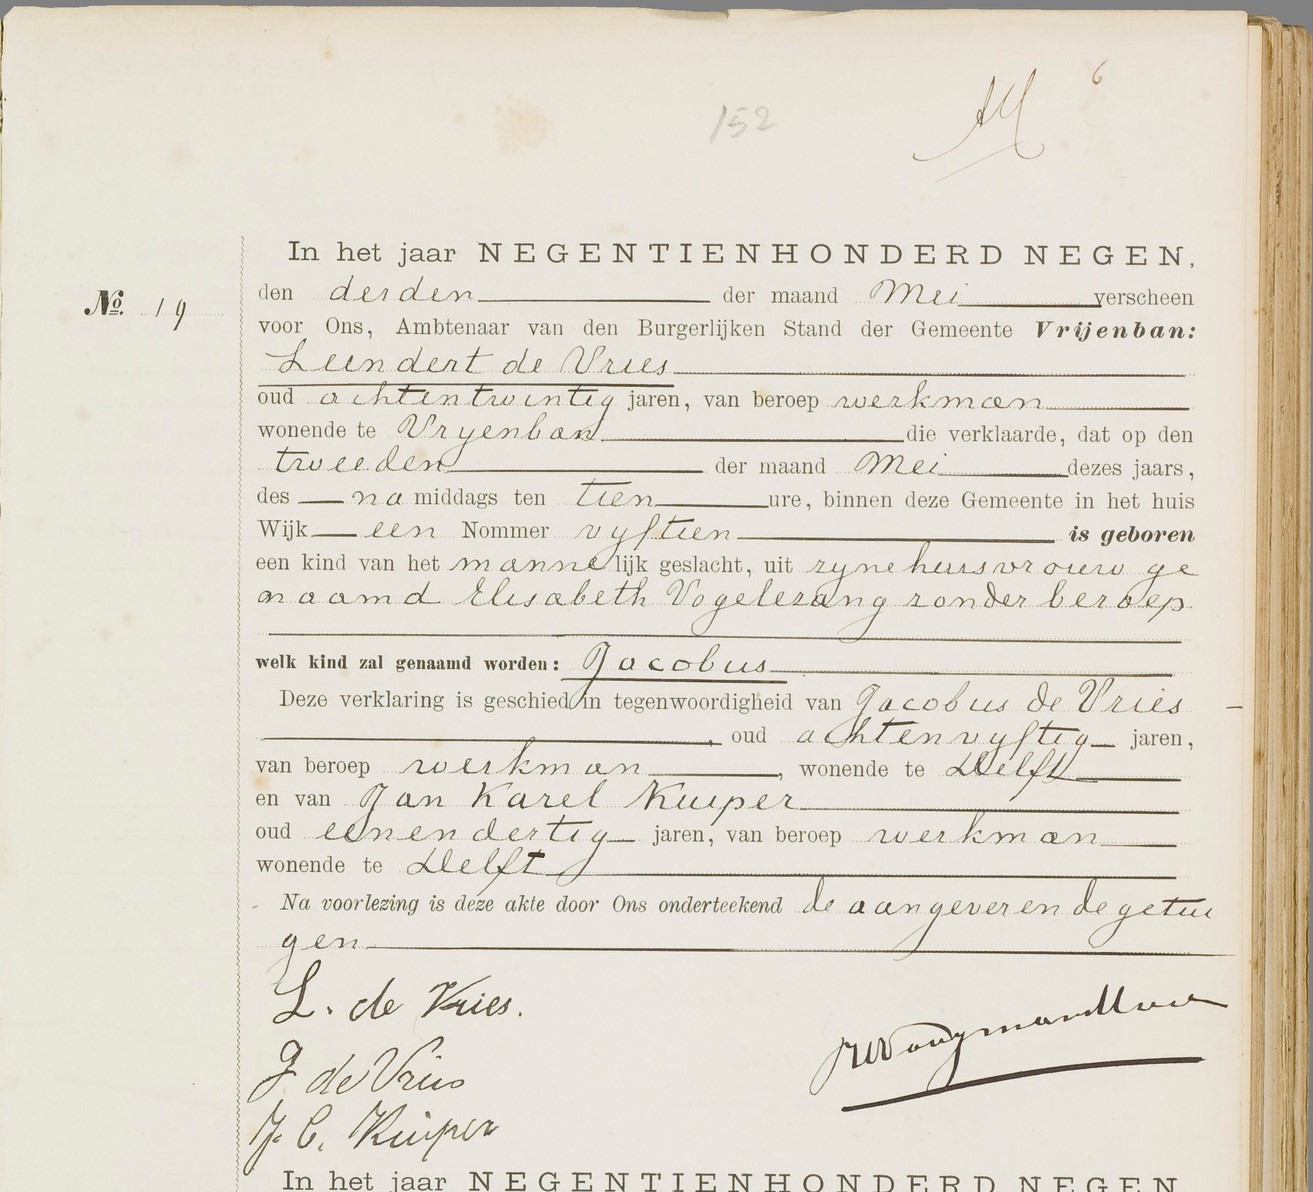 6
152
In het jaar NEGENTIENHONDERD NEGEN,
No. 19
den derden der maand Mei verscheen
voor Ons, Ambtenaar van den Burgerlijken Stand der Gemeente Vrijenban:
Leendert de Vries
oud achtentwintig jaren, van beroep werkman
wonende te Vryenban die verklaarde, dat op den
tweeden der maand Mei dezes jaars,
des na middags ten tien ure, binnen deze Gemeente in het huis
Wijk een Nommer vyftien is geboren
een kind van het mannelijk geslacht, uit zyne huisvrouw ge
naamd Elisabeth Vogelezang zonder beroep
welk kind zal genaamd worden: Jacobus
Deze verklaring is geschied in tegenwoordigheid van Jacobus de Vries
, oud achtenvyftig jaren,
van beroep werkman, wonende te Delft
en van Jan Karel Kuiper
oud eenendertig jaren, van beroep werkman
wonende te Delft
Na voorlezing is deze akte door Ons onderteekend de aangever en de getui
gen
L. de Vries.
J de Vries
J. C. Kuiper
In het jaar NEGENTIENHONDERD NEGEN